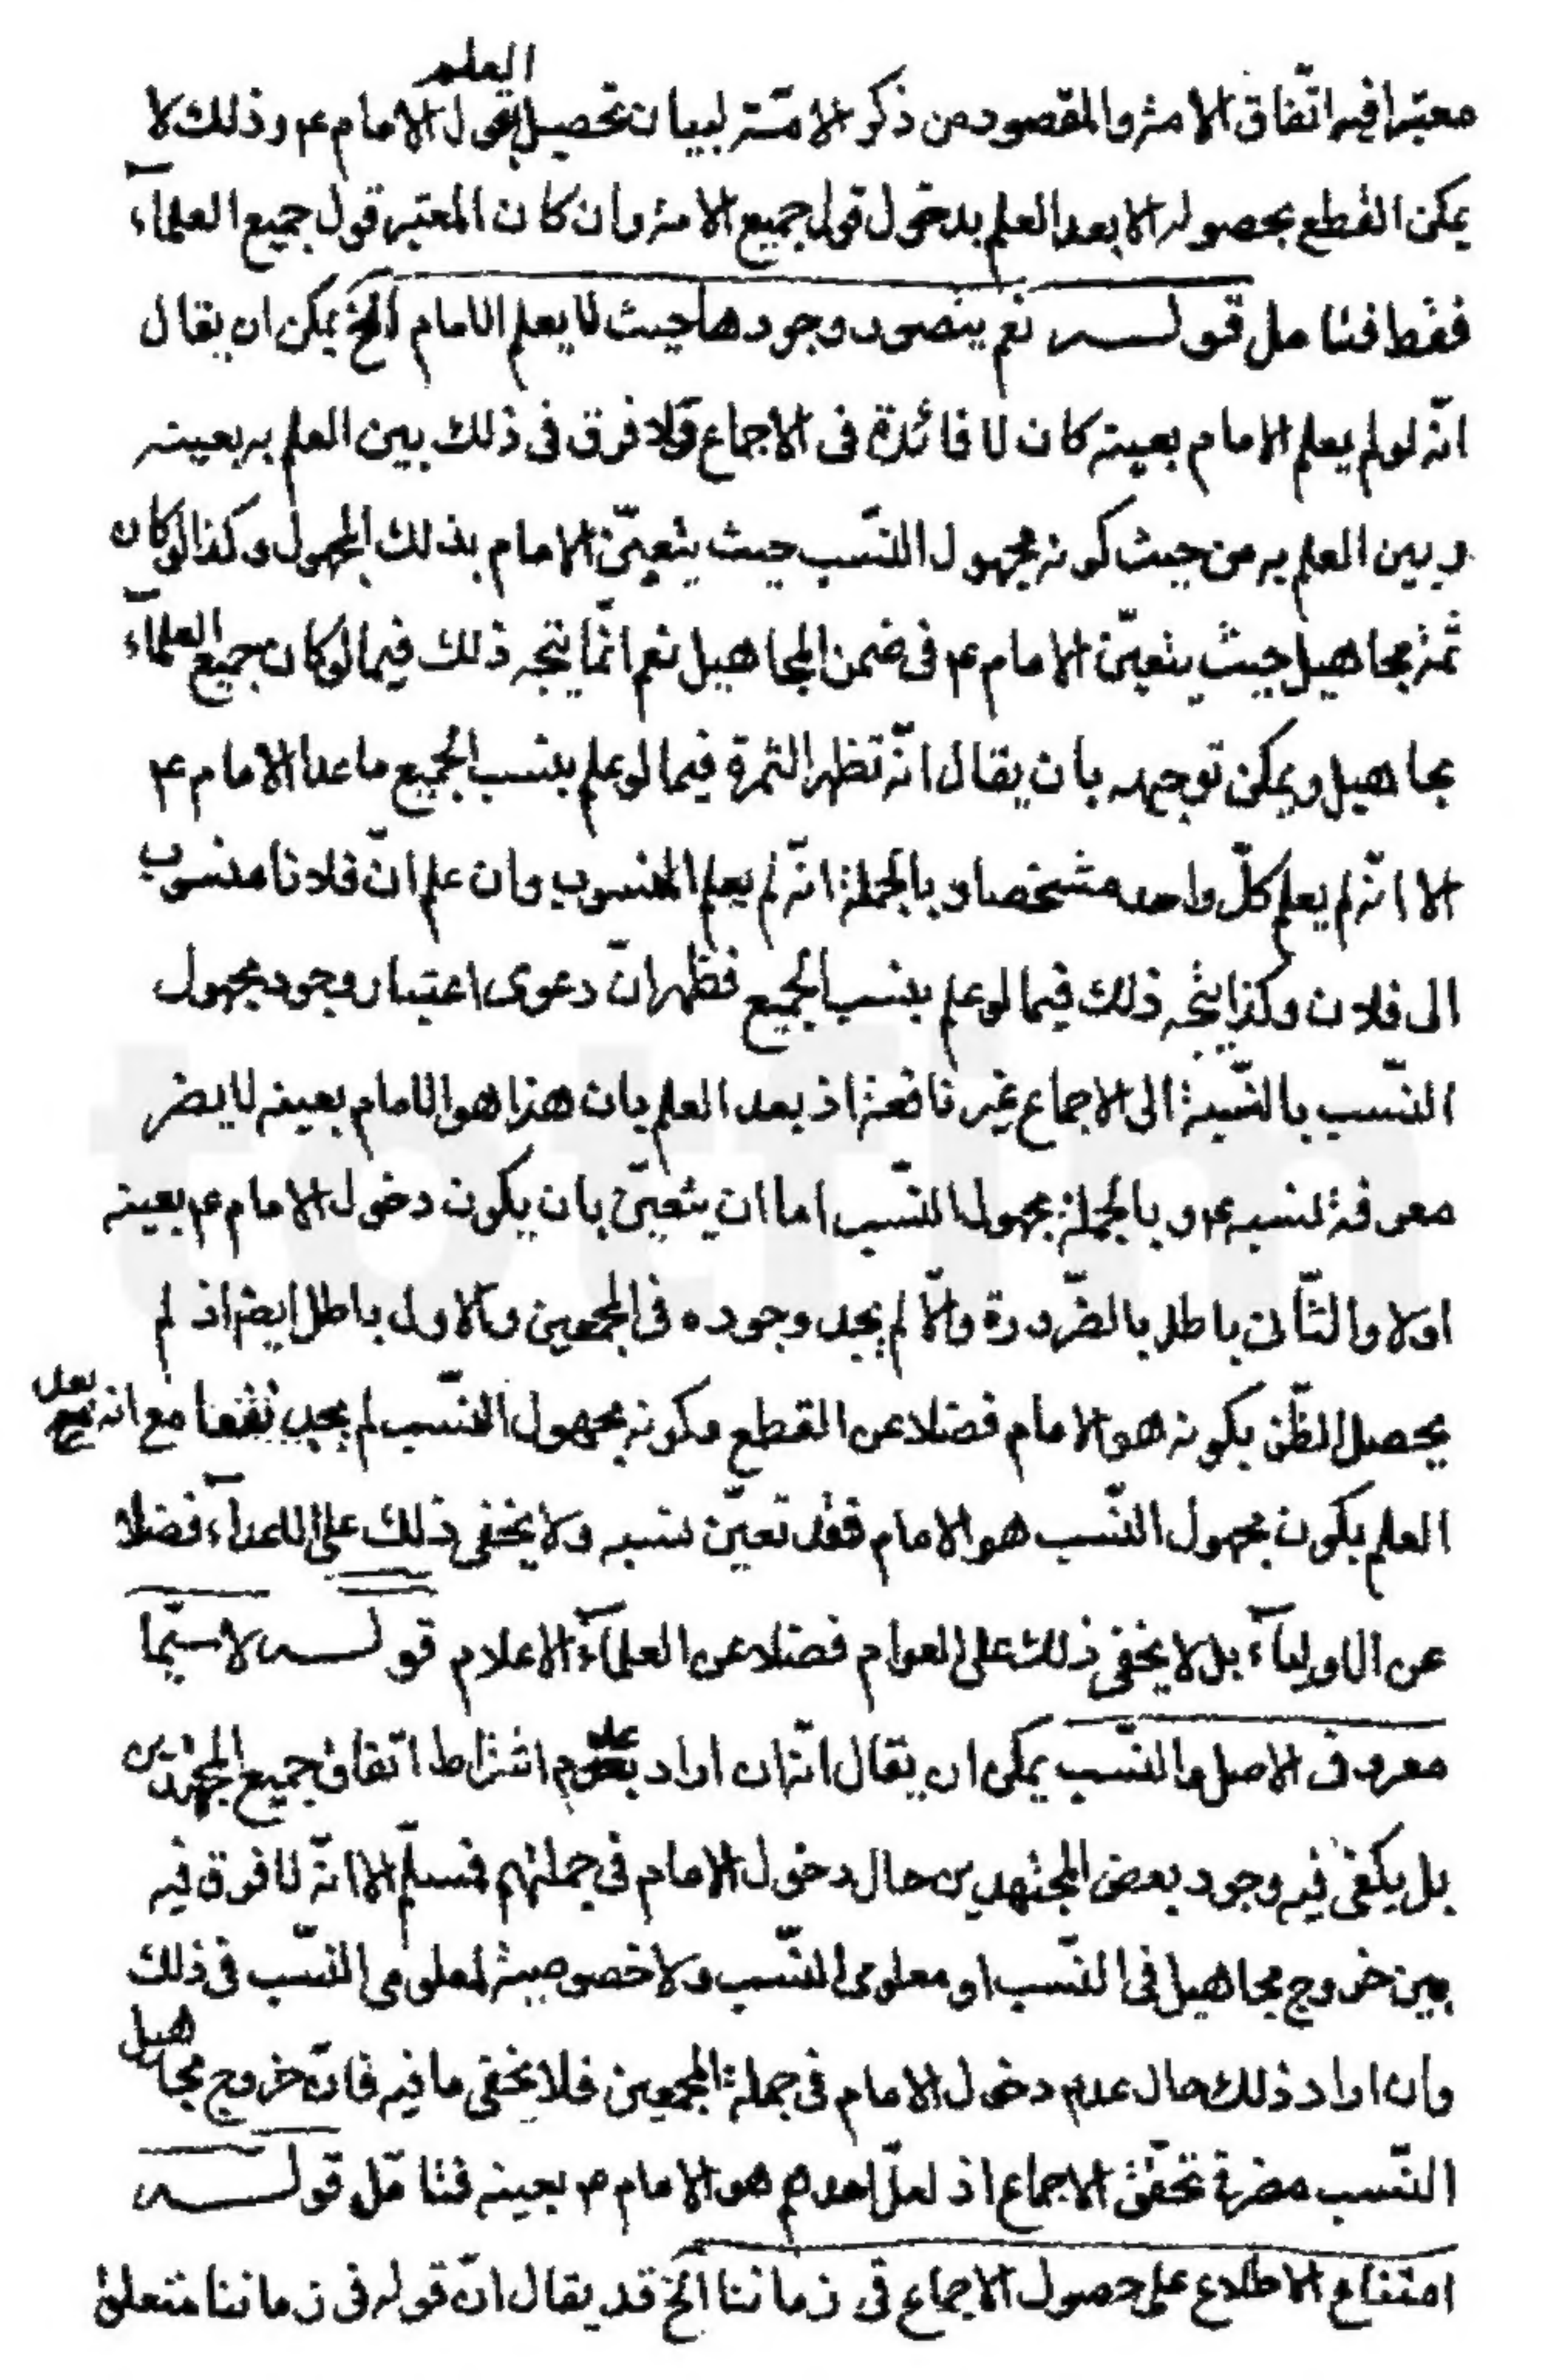 معتبرا فيه اتّفاق الامة والمقصود من ذكر الامّة لبيان تحصيل العلم بقول الامام ع وذلك لا
يمكن القطع بحصوله الا بعد العلم بدخول قول جميع الامة وان كان المعتبر قول جميع العلمآء
فقط فتامل قوله نعم يتصور وجودها حيث لا يعلم الامام الخ يمكن ان يقال
انّه لو لم يعلم الامام بعينه كان لا فائدة فى الاجماع ولا فرق فى ذلك بين العلم به بعينه
وبين العلم به من حيث كونه مجهول النّسب حيث يتعيّن الامام بذلك المجهول وكذا لو كان
ثمة مجاهيل حيث يتعيّن الامام ع فى ضمن المجاهيل نعم انّما يتجه ذلك فيما لو كان جميع العلمآء
مجاهيل ويمكن توجيهه بان يقال انّه تظهر الثمرة فيما لو علم بنسب الجميع ما عدا الامام ع
الا انّه لم يعلم كلّ واحد مشخصا وبالجملة انّه لم يعلم المنسوب وان علم انّ فلانا منسوب
الى فلان وكذا يتجه ذلك فيما لو علم بنسب الجميع فظهر انّ دعوى اعتبار وجود مجهول
النّسب بالنّسبة الى الاجماع غير نافعة اذ بعد العلم بان هذا هو الامام بعينه لا يضر
معرفة نسبه ع وبالجملة مجهول النّسب اما ان يتعيّن بان يكون دخول الامام ع بعينه
اولا والثّانى باطل بالضّرورة والّا لم يجد وجوده فى المجمعين والاول باطل ايضا اذ لم
يحصل الظّن بكونه هو الامام فضلا عن القطع وكونه مجهول النّسب لم يجد نفعا مع انه بعد
العلم بكون مجهول النّسب هو الامام فقد تعيّن نسبه ولا يخفى ذلك على الاعدآء فضلا
عن الاوليآء بل لا يخفى ذلك على العوام فضلا عن العلمآء الاعلام قوله لاسيّما
معروف الاصل والنّسب يمكن ان يقال انّه ان اراد بعدم اشتراط اتّفاق جميع المجتهدين
بل يكفى فيه وجود بعض المجتهدين حال دخول الامام فى جملتهم فمسلّم الا انّه لا فرق فيه
بين خروج مجاهيل فى النّسب او معلومى النّسب ولا خصوصية لمعلومى النّسب فى ذلك
وان اراد ذلك حال عدم دخول الامام فى جملة المجمعين فلا يخفى ما فيه فانّ خروج مجاهيل
النّسب مضر فى تحقّق الاجماع اذ لعلّ احدهم هو الامام ع بعينه فتامّل قوله
امتناع الاطلاع على حصول الاجماع فى زماننا الخ قد يقال انّ قوله فى زماننا متعلق